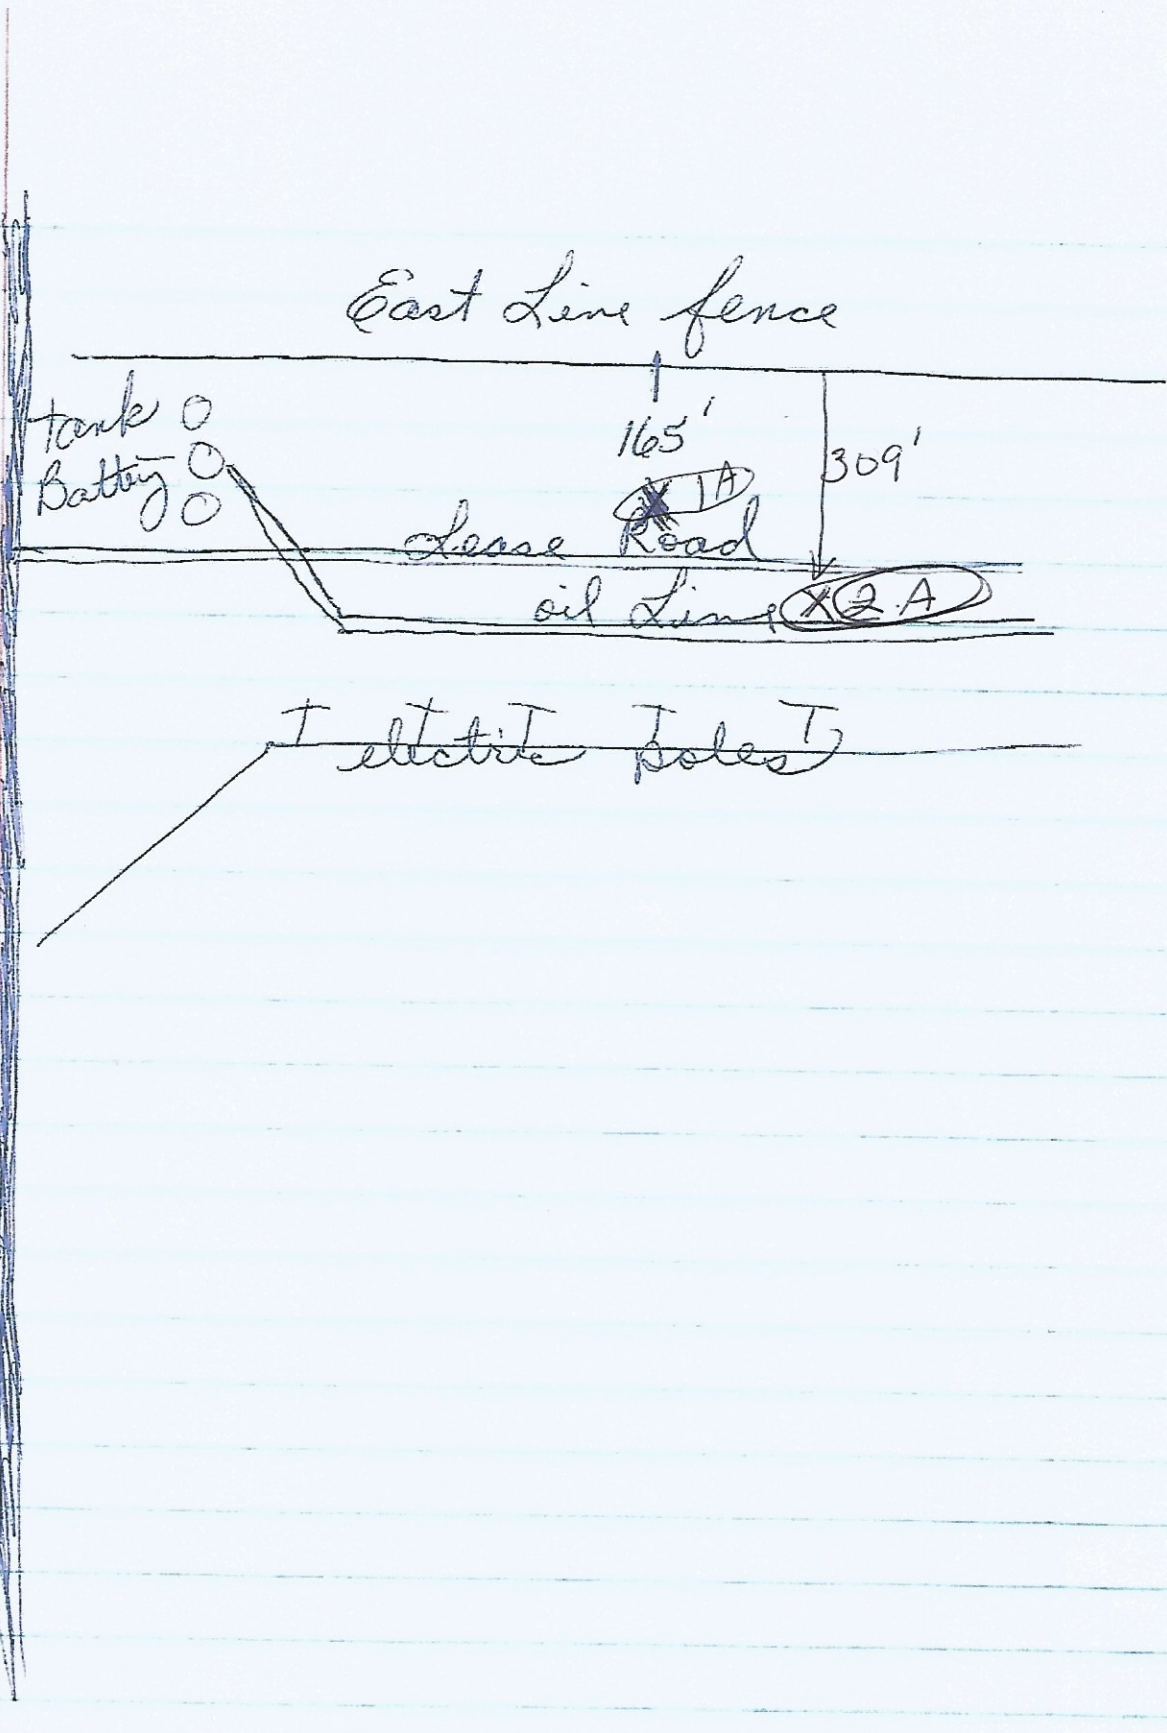 East Line fence
tank
Battery
165'
309'
X 1A
Lease Road
oil Line
X 2A
electric poles